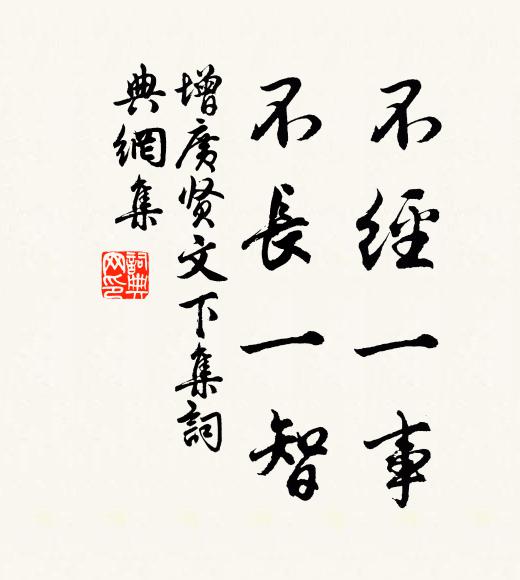 不經一事
不長一智
增廣贤文下集詞
典網集
詞典
网印